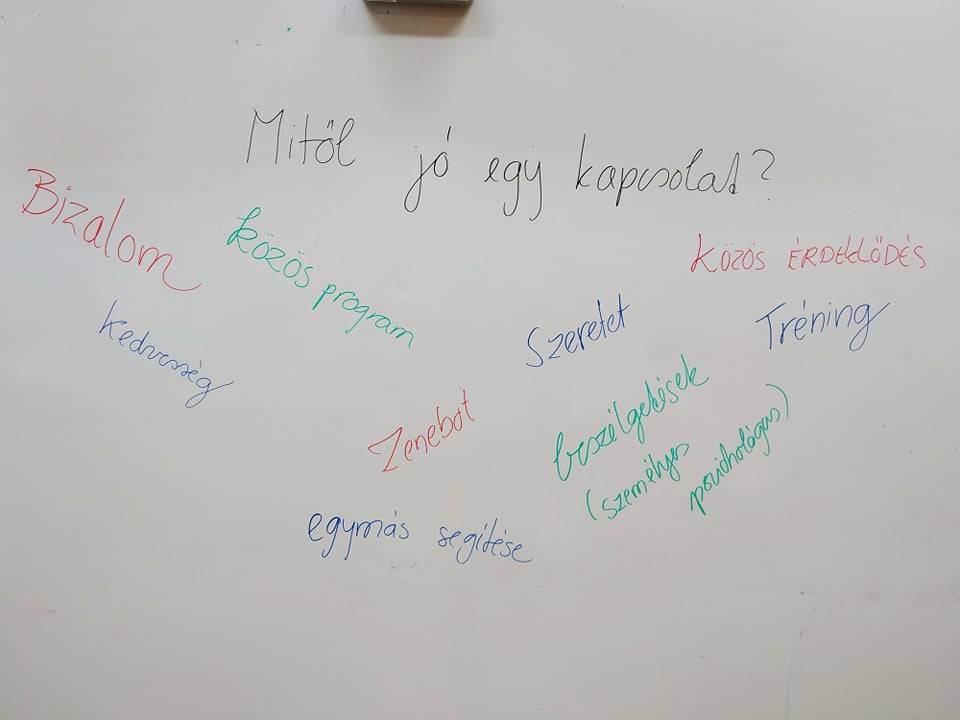 Mitől jó egy kapcsolat?
Bizalom
közös program
KÖZÖS ÉRDEKLŐDÉS
kedvesség
Szeretet
Tréning
Zenebot
beszélgetések
(személyes
pszichológus)
egymás segítése